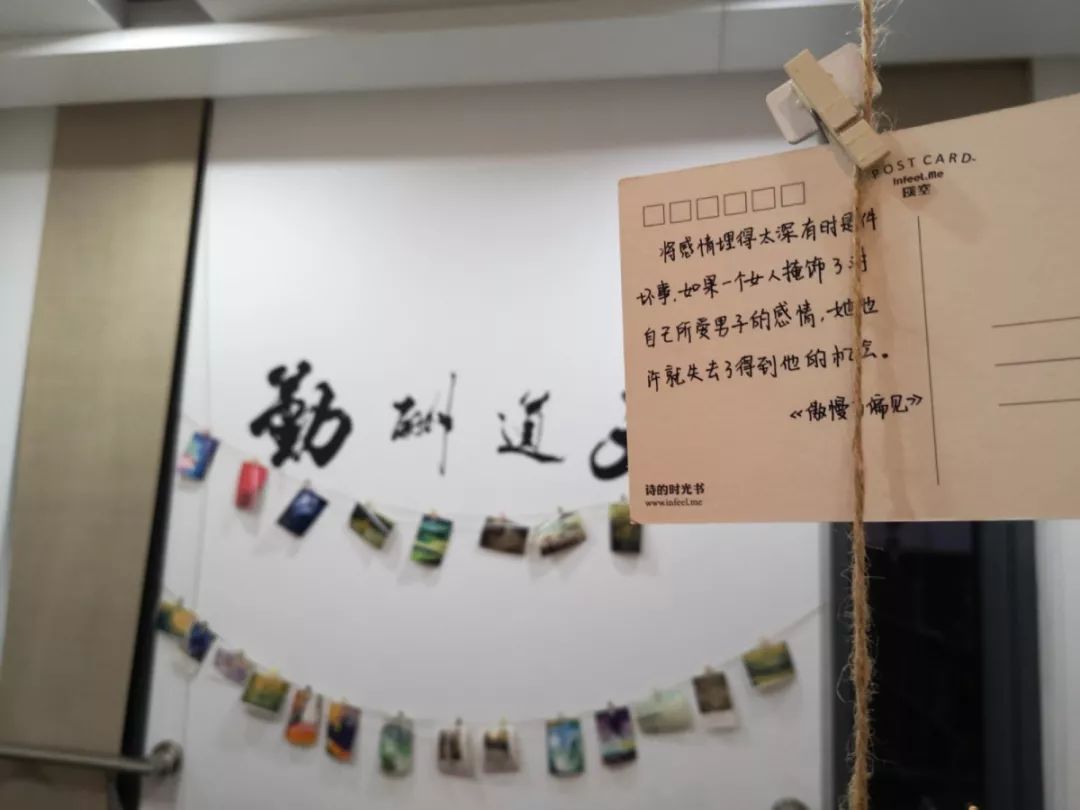 POST CARD
Infeel.Me
将感情埋得太深有时是件
坏事,如果一个女人掩饰了对
自己所爱男子的感情,她也
许就失去了得到他的机会。
《傲慢与偏见》
诗的时光书
www.infeel.me
勤酬道